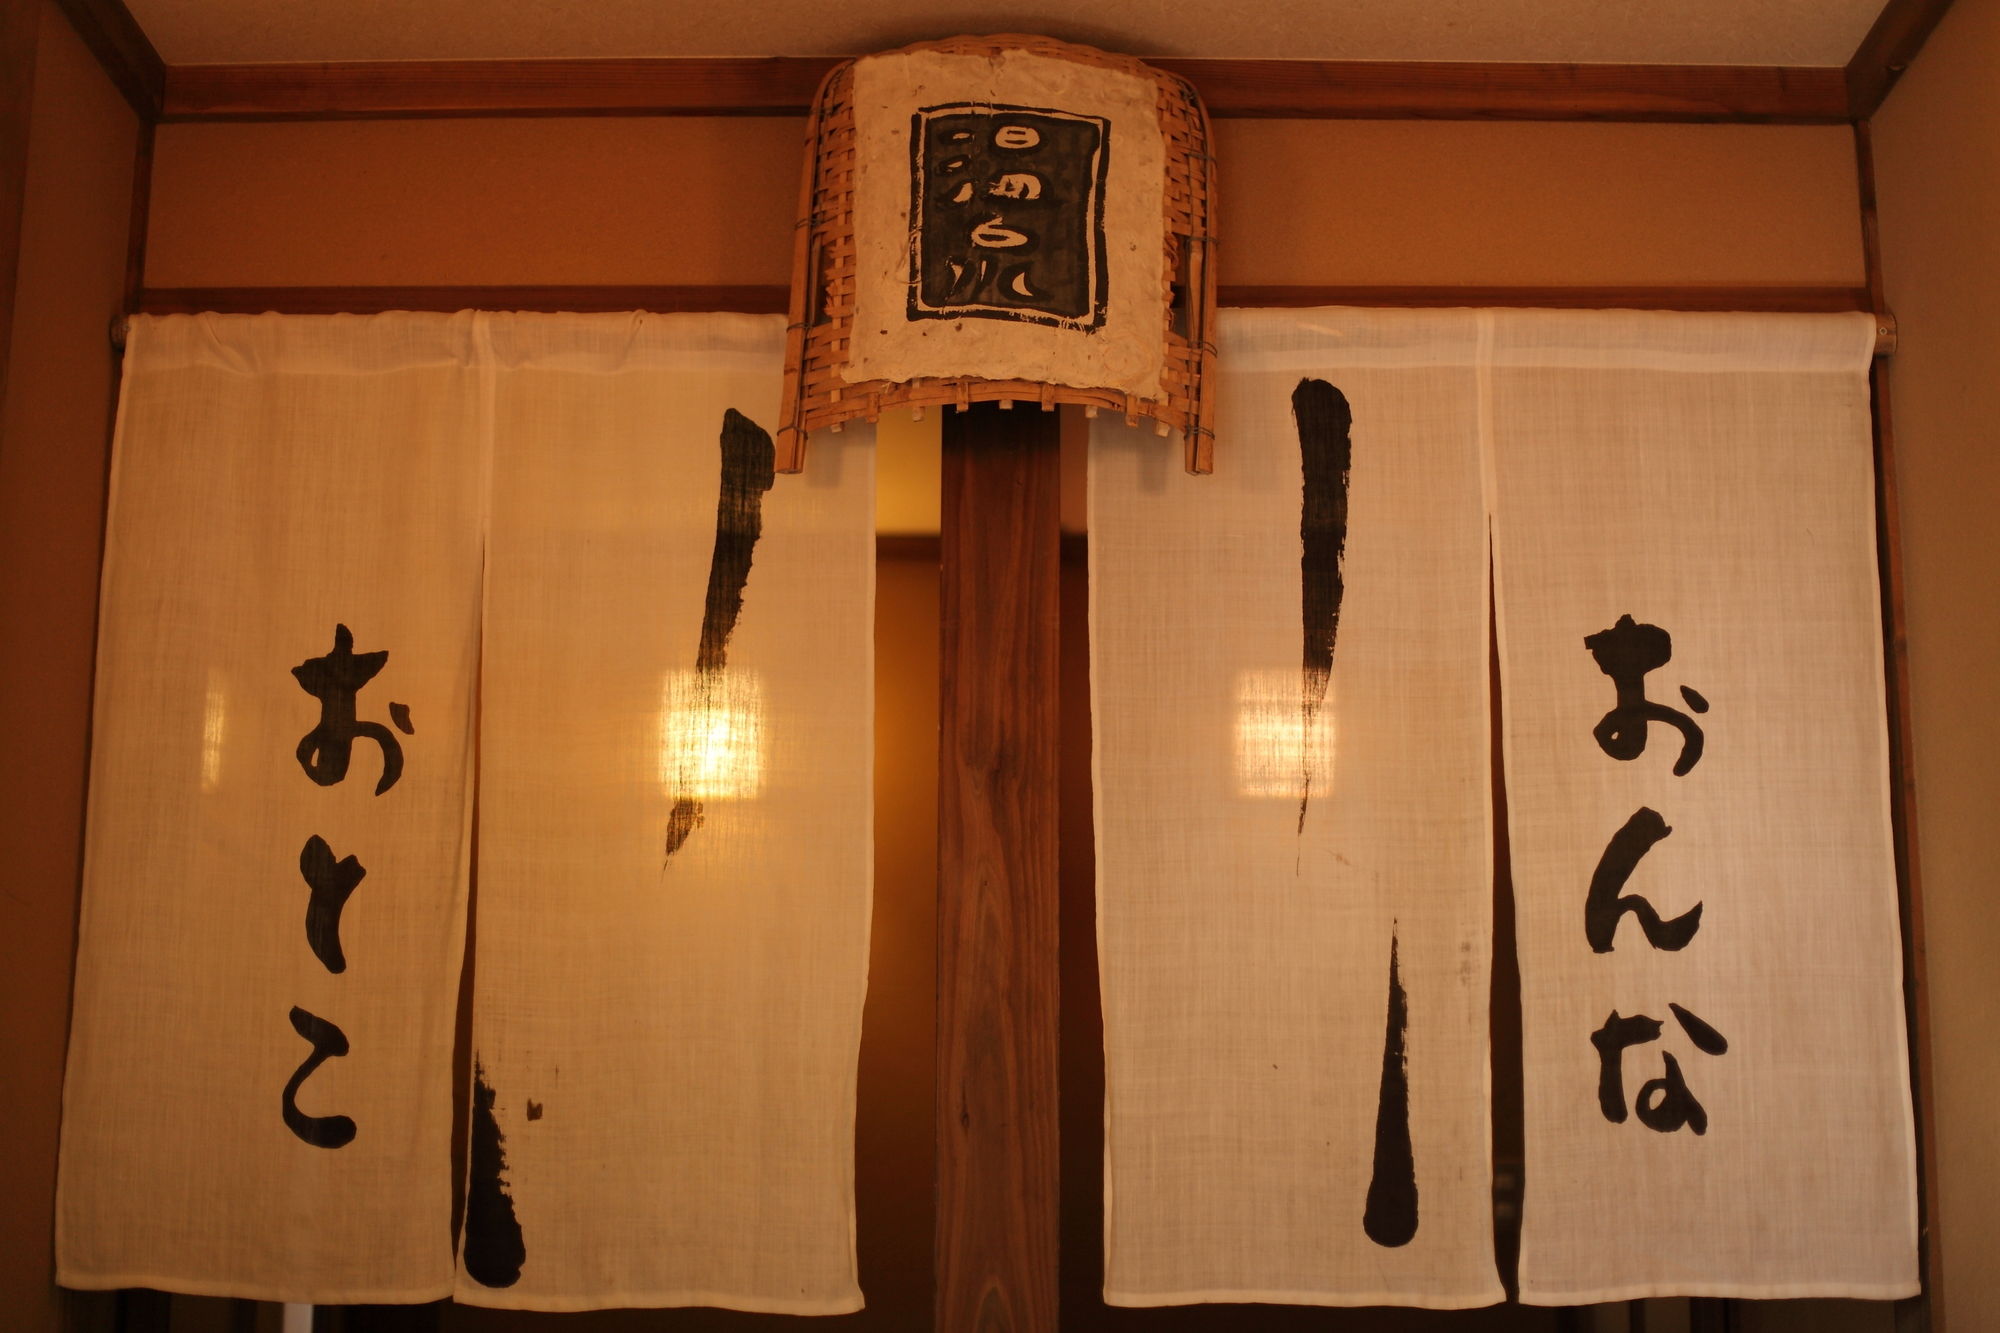 温泉
おとこ
おんな